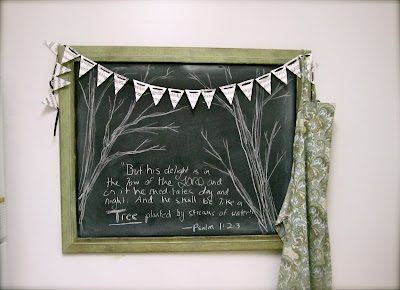 "But his delight is in
the law of the LORD and
on it he meditates day and
night. And he shall be like a
Tree planted by streams of water"
—Psalm 1:2-3